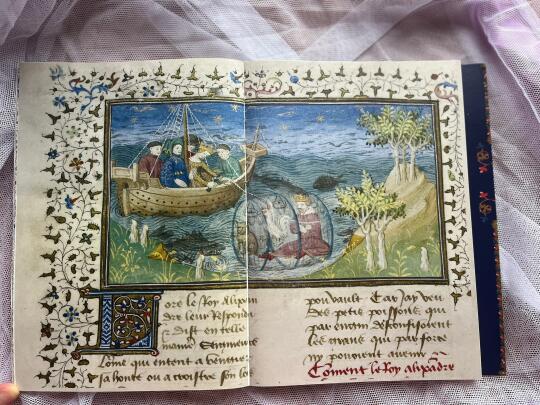 Lore le Roy Alixan
dre leur Respondi
et Dist en telle
maniere Seigneurs
Lôme qui entent a bencure
sa honte ou a croistre son lo
poudault Car Jay veu
Des petis poissons qui
par engin desconfisoient
les grans qui par force
ny pouoient auenir
Coment le Roy alixãdre